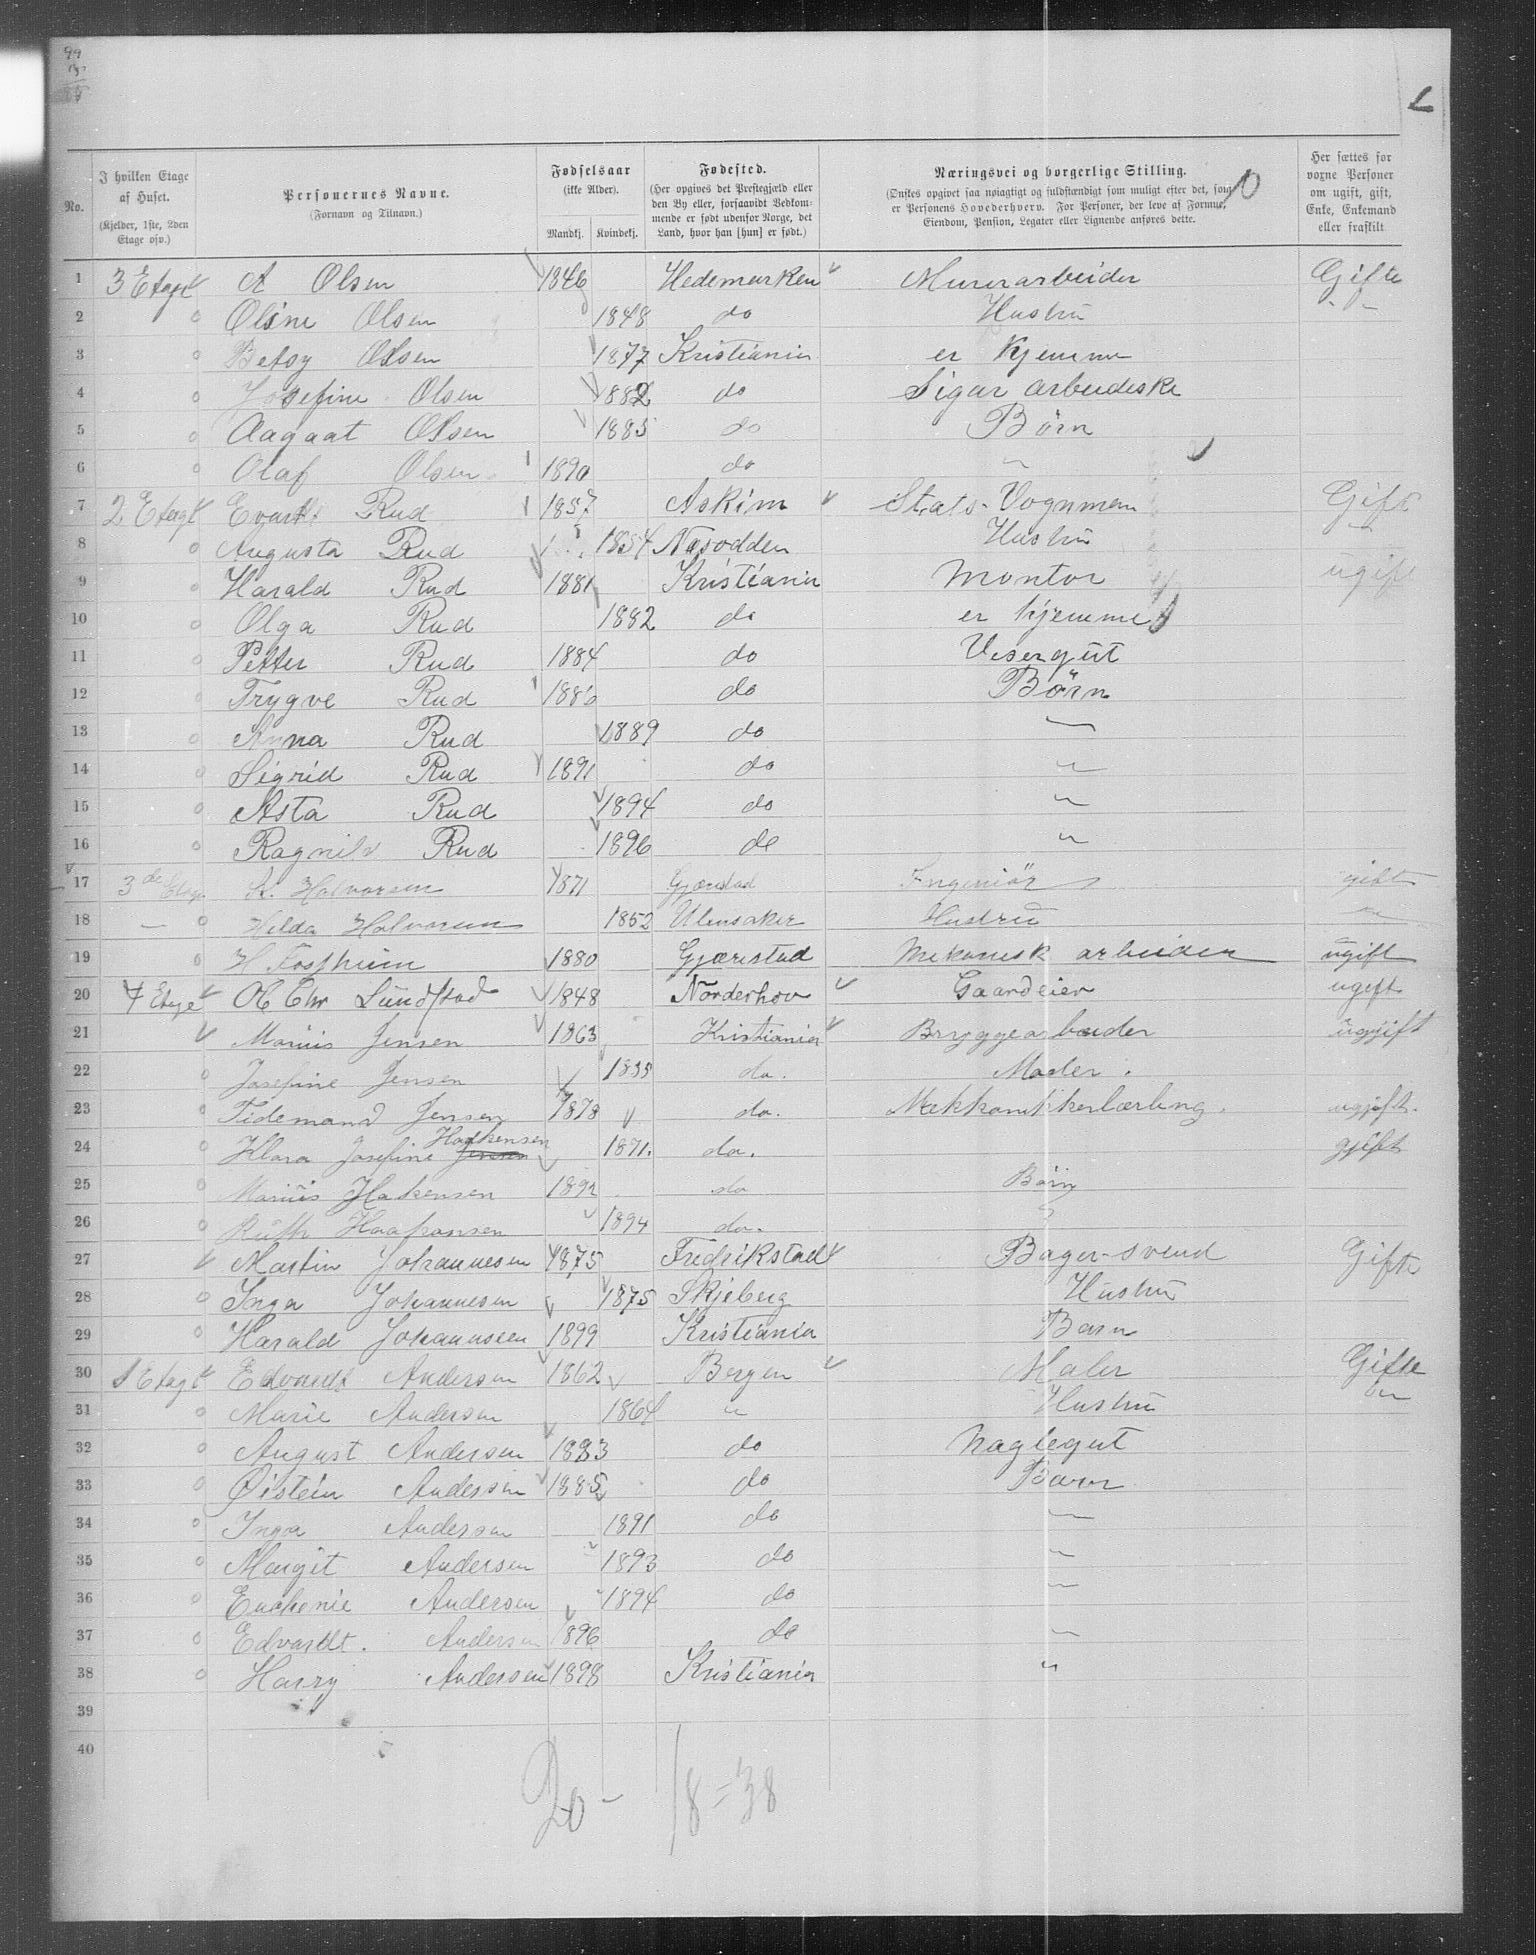 No.
I hvilken Etage af Huset. (Kjelder, 1ste, 2den Etage osv.)
Personernes Navne. (Fornavn og Tilnavn.)
Fødselsaar (ikke Alder). Mandkj. Kvindekj.
Fødested. (Her opgives det Prestegjæld eller den By eller, forsaavidt Vedkommende er født udenfor Norge, det Land, hvor han [hun] er født.)
Næringsvei og borgerlige Stilling. (Ønskes opgivet saa nøiagtigt og fuldstændigt som muligt efter det, som er Personens Hovederhverv. For Personer, der leve af Formue, Eiendom, Pension, Legater eller Lignende anføres dette.
Her sættes for voxne Personer om ugift, gift, Enke, Enkemand eller fraskilt
1 3 Etage A Olsen 1846 Hedemarken Murerarbeider Gifte
2 Olsine Olsen 1848 do Hustru " "
3 Betsy Olsen 1877 Kristiania er hjemme
4 Josefine Olsen 1882 do Sigar arbeideske
5 Aagaat Olsen 1885 do Børn
6 Olaf Olsen 1890 do "
7 2 Etage Evardt Rud 1857 Askim Stats-Vognman Gift
8 Augusta Rud 1854 Nasodden Hustru "
9 Harald Rud 1881 Kristiania Montor ugift
10 Olga Rud 1882 do er hjemme
11 Petter Rud 1884 do Visergut
12 Trygve Rud 1886 do Børn
13 Anna Rud 1889 do "
14 Sigrid Rud 1891 do "
15 Asta Rud 1894 do "
16 Ragnild Rud 1896 do "
17 3de Etage Halvorsen 1871 Gjerstad Ingeniør gift
18 — Hilda Halvorsen 1852 Ulensaker Hustru "
19 H. Fospheim 1880 Gjærestad Mekanisk arbeider ugift
20 4 Etage Ol Chr Sundstad 1848 Norderhov Gaardeier ugift
21 Marius Jensen 1863 Kristiania Bryggearbeider ugjift
22 Josefine Jensen 1835 do. Moder.
23 Tidemand Jensen 1878 do. Mekkanikkerlærling. ugjift.
24 Klara Josefine Jensen Haakensen 1871. do. gjift
25 Marius Hakensen 1892 do Børn
26 Ruth Haakonsen 1894 do. "
27 Martin Johannesen 1875 Fredrikstad Bager-svend Gifte
28 Inga Johannesen 1875 Skjeberg Hustru
29 Harald Johannesen 1899 Kristiania Barn
30 1 Etage Edvardt Andersen 1862 Bergen Maler Gifte
31 Marie Andersen 1864 " Hustru "
32 August Andersen 1883 do Naglegut
33 Øistein Andersen 1885 do Barn
34 Inga Andersen 1891 do "
35 Margit Andersen 1893 do "
36 Euchenie Andersen 1894 do "
37 Edvardt. Andersen 1896 do "
38 Harry Andersen 1898 Kristiania "
39
40
20 - 18 = 38